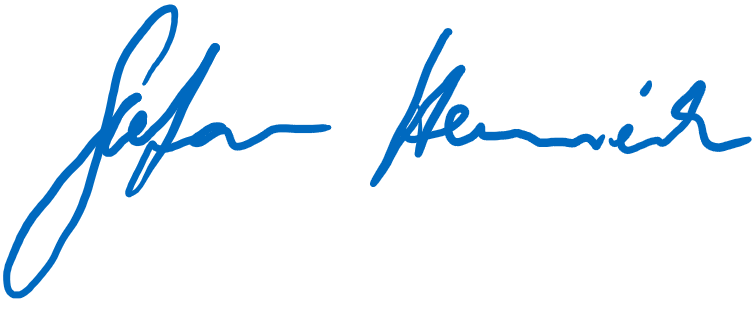 Stefan Heinrich